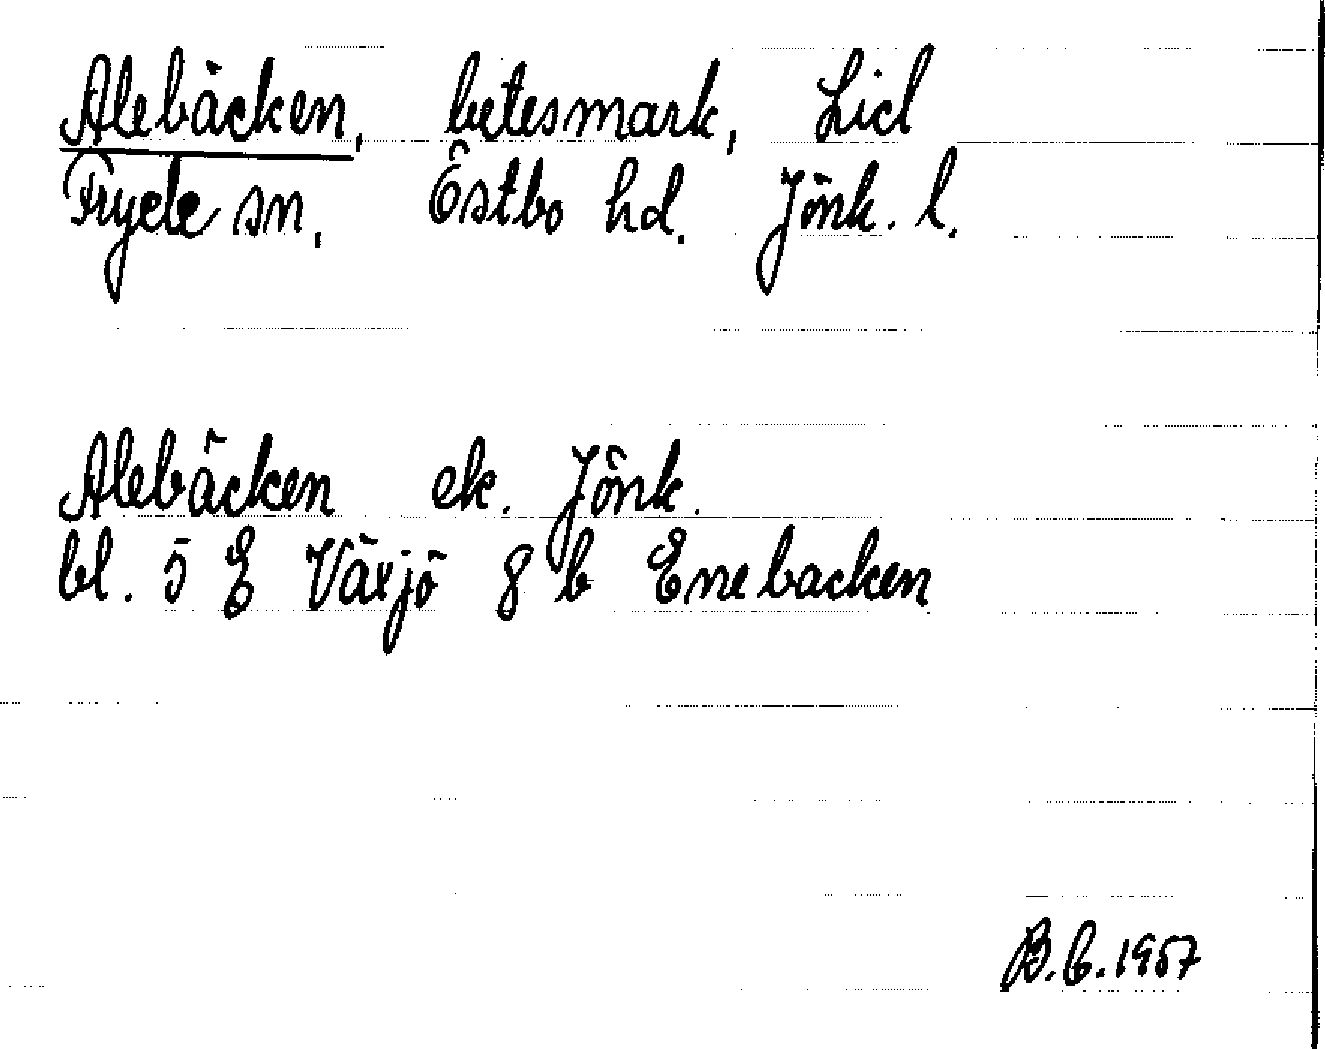 Alebäcken, betesmark, Lid
Tryde sn, Östbo hd. Jönk. l.
Alebäcken ek. Jönk.
bl. 5 E Växjö 8 b Enebacken
B.C. 1957